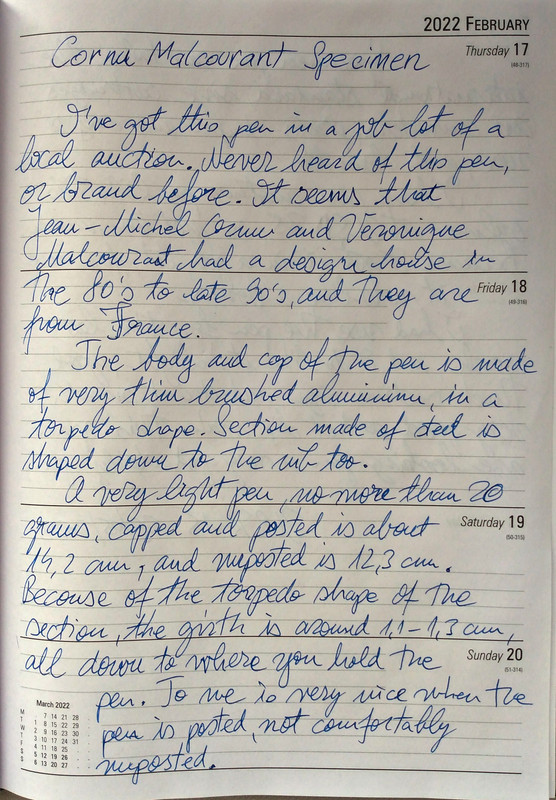 2022 FEBRUARY
Thursday 17
(48-317)
Cornu Malcourant Specimen
I've got this pen in a job lot of a
local auction. Never heard of this pen,
or brand before. It seems that
Jean-Michel Cornu and Veronique
Malcourant had a design house in
the 80's to late 90's, and they are
Friday 18
(49-316)
from France.
The body and cap of the pen is made
of very thin brushed aluminium, in a
torpedo shape. Section made of steel is
shaped down to the nib too.
A very light pen, no more than 20
grams, capped and posted is about
Saturday 19
(50-315)
14,2 cm, and unposted is 12,3 cm.
Becouse of the torpedo shape of the
section, the girth is around 1,1-1,3 cm,
all down to where you hold the
Sunday 20
(51-314)
pen. To me is very nice when the
pen is posted, not comfortably
unposted.
March 2022
M 7 14 21 28
T 1 8 15 22 29
W 2 9 16 23 30
T 3 10 17 24 31
F 4 11 18 25
S 5 12 19 26
S 6 13 20 27